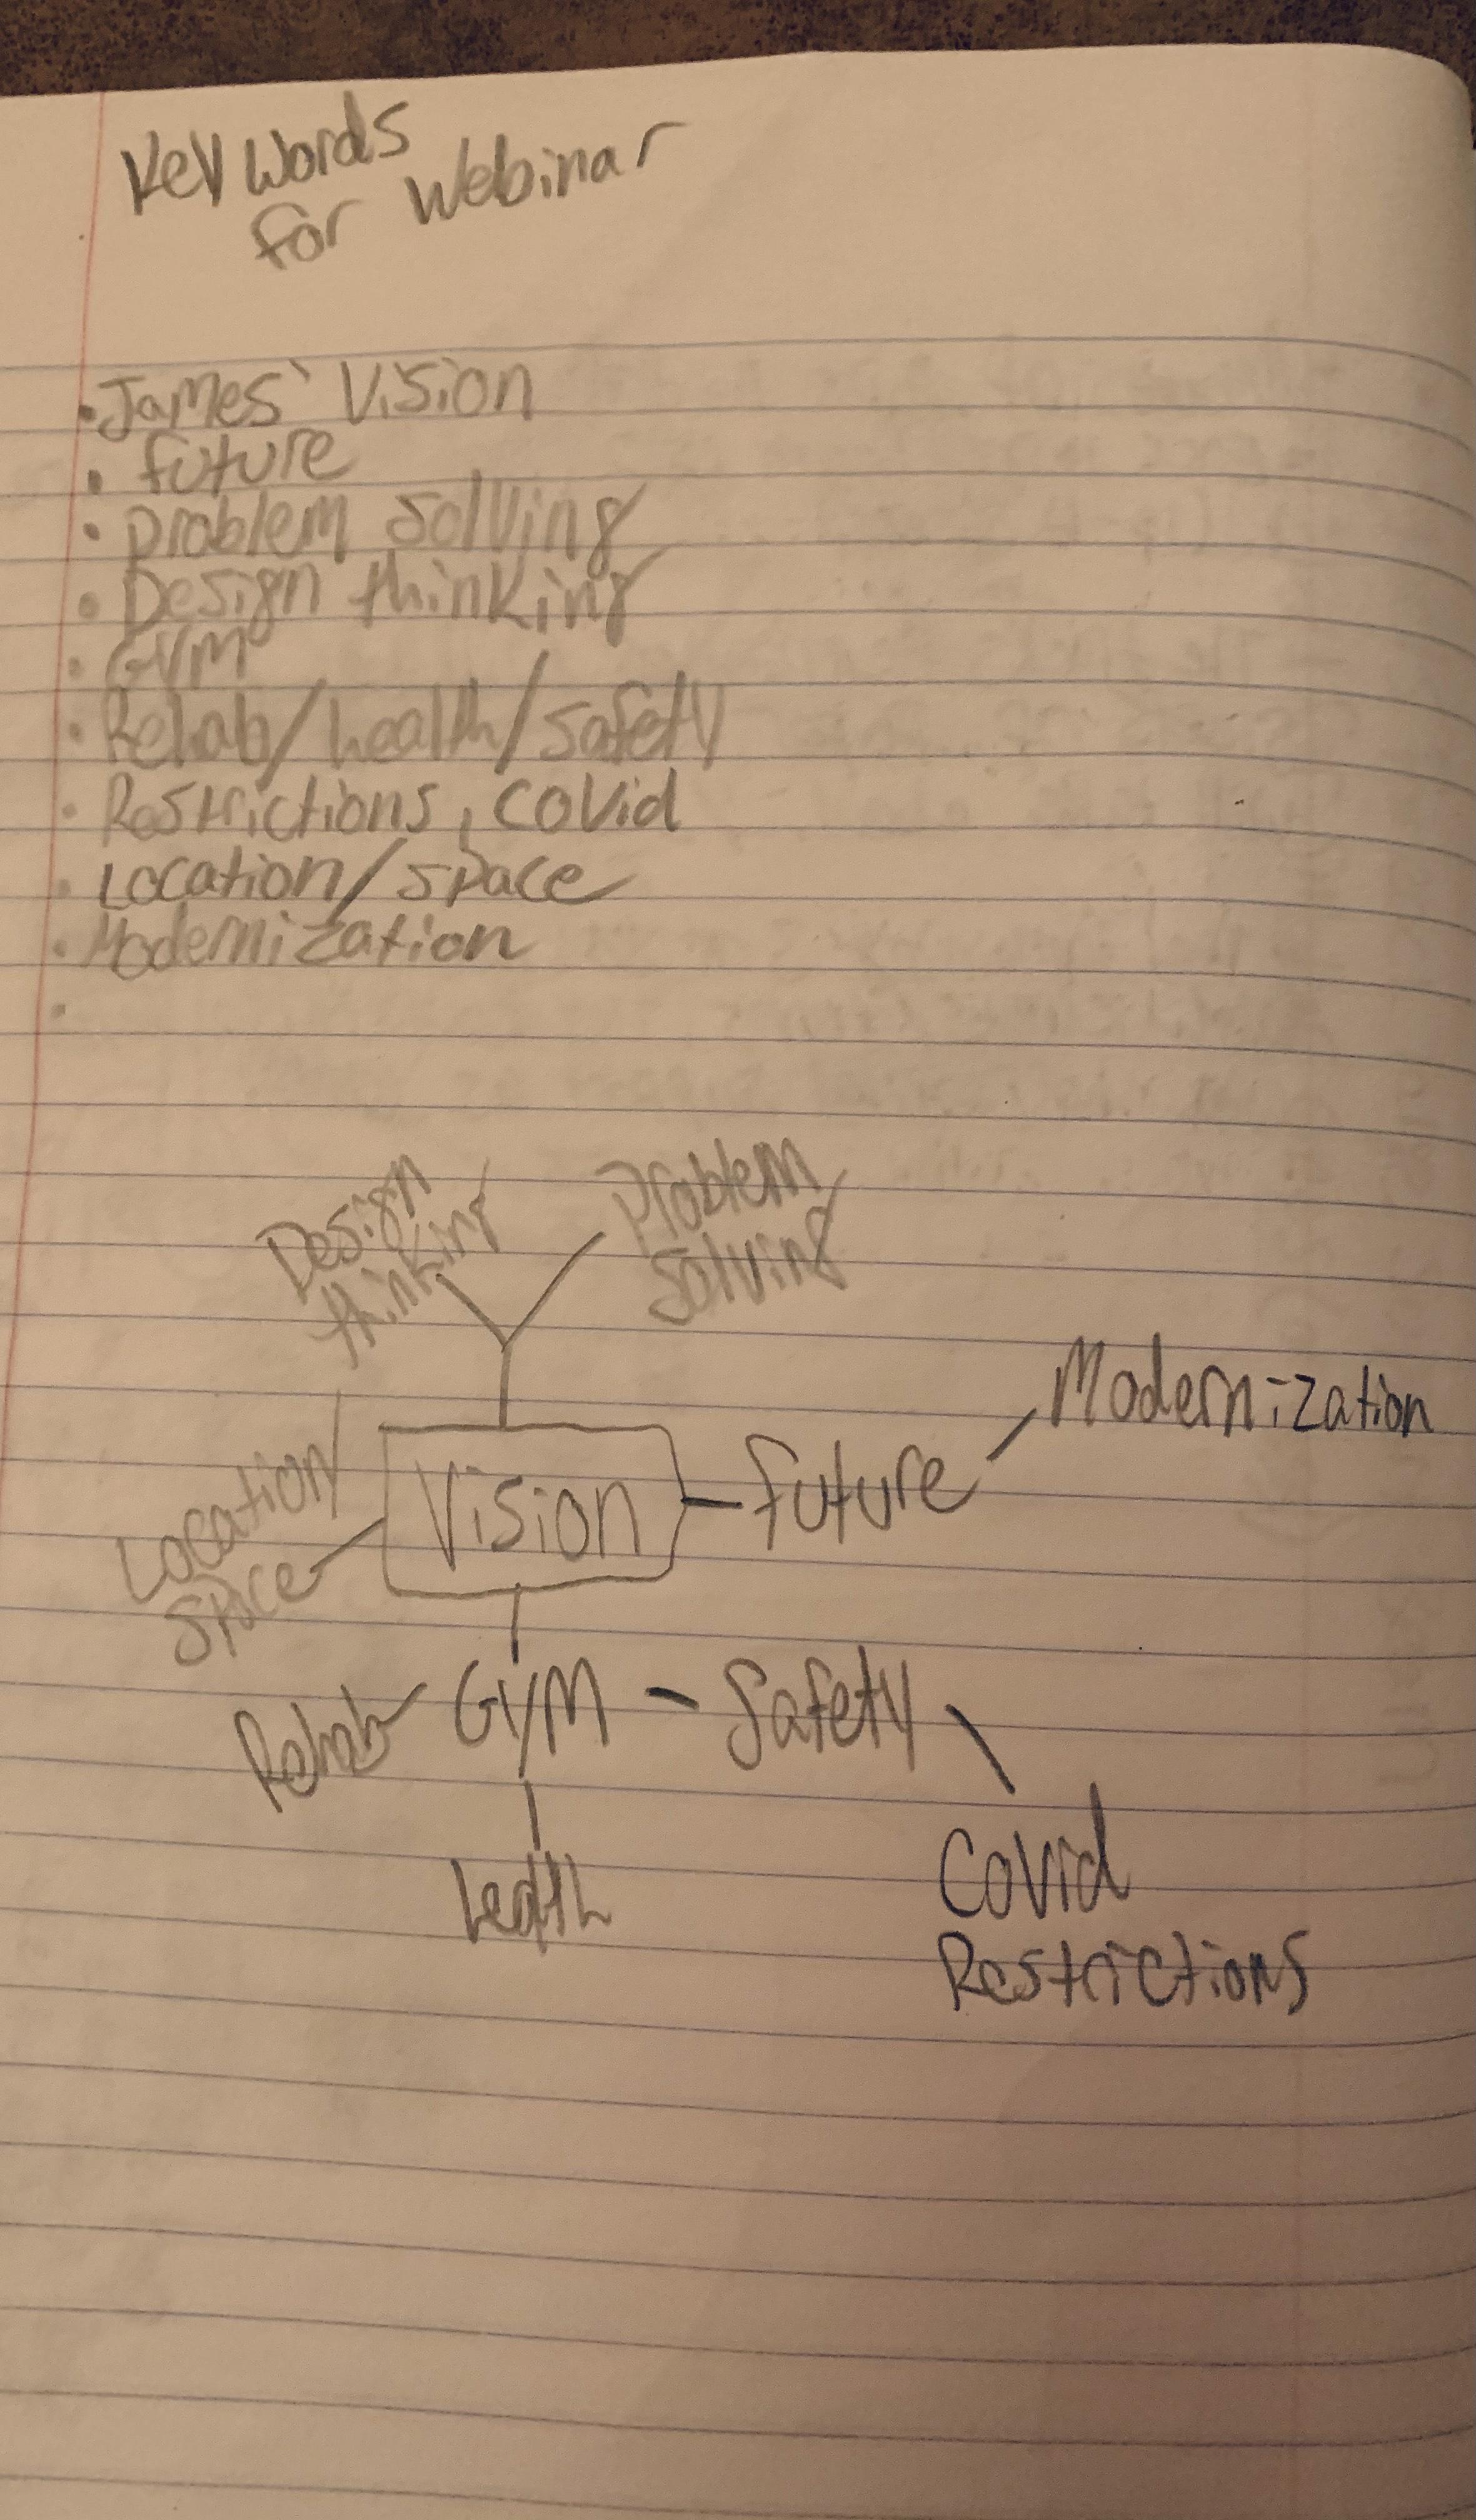 Key Words
for Webinar
• James' Vision
• future
• problem solving
• Design thinking
• GYM
• Rehab/health/safety
• Restrictions, Covid
• Location/space
• Modernization
•
Design
thinking
Problem
Solving
Modernization
Location/
Space
Vision
future
Rehab
GYM
Safety
Health
Covid
Restrictions